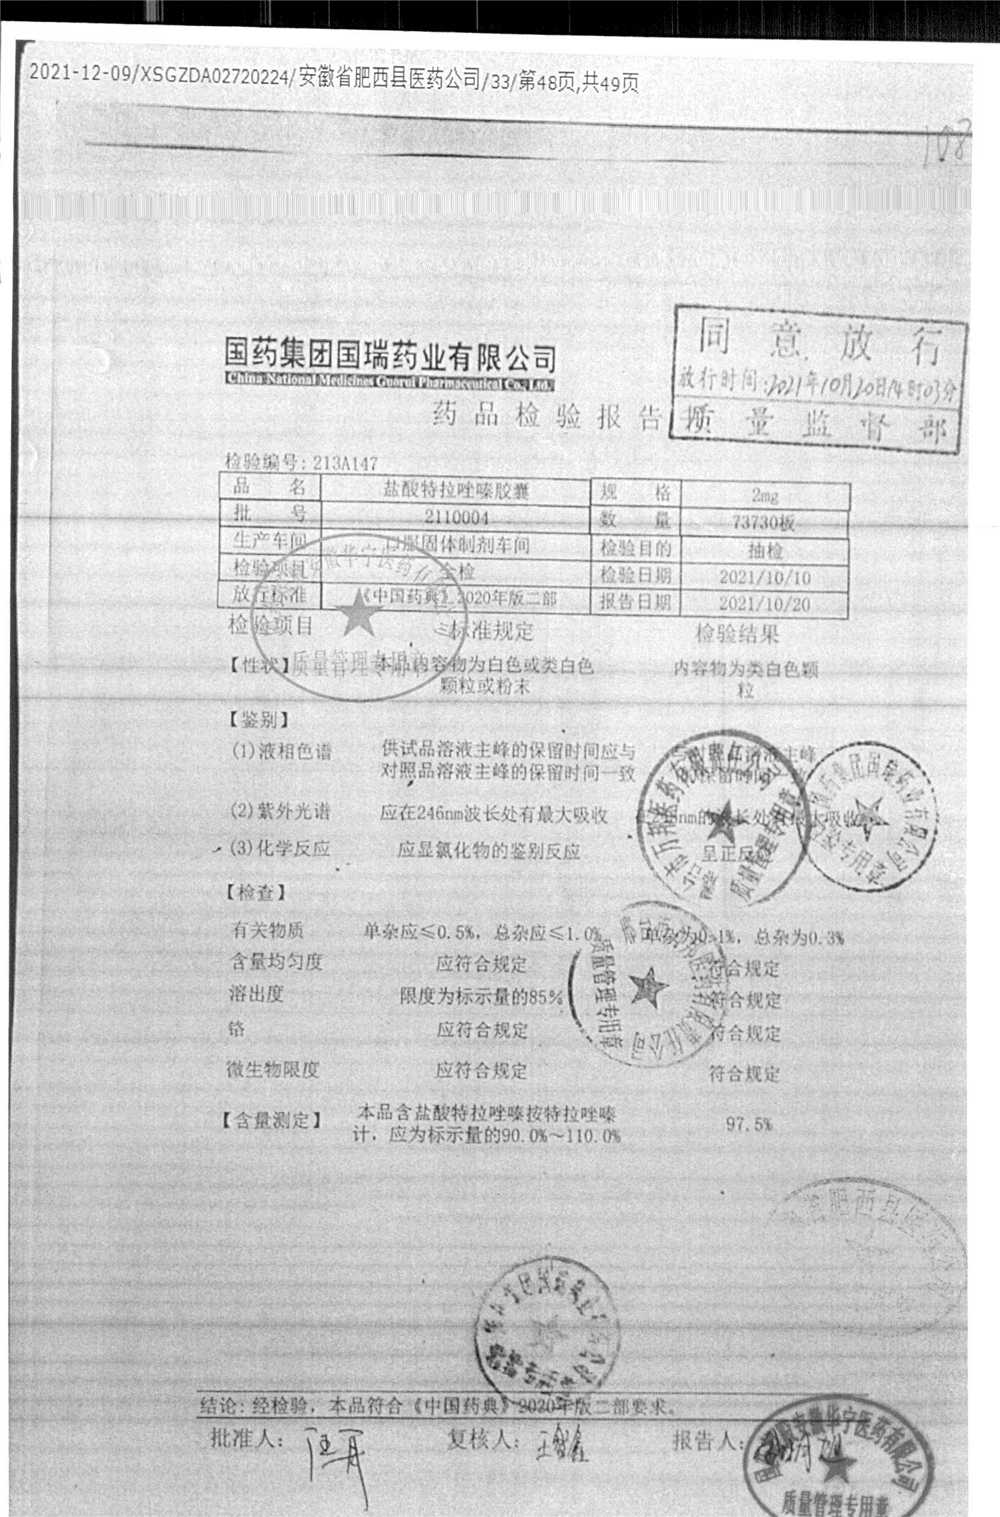 2021-12-09/XSGZDA02720224/安徽省肥西县医药公司/33/第48页,共49页
108
国药集团国瑞药业有限公司
China National Medicines Guorui Pharmaceutical Co., Ltd.
同意放行
放行时间:2021年10月20日14时03分
质量监督部
药品检验报告
检验编号: 213A147
品 名 盐酸特拉唑嗪胶囊 规 格 2mg
批 号 2110004 数 量 73730板
生产车间 口服固体制剂车间 检验目的 抽检
检验项目 全检 检验日期 2021/10/10
放行标准 《中国药典》2020年版二部 报告日期 2021/10/20
检验项目 标准规定 检验结果
【性状】 本品内容物为白色或类白色 内容物为类白色颗
颗粒或粉末 粒
质量管理专用章
【鉴别】
(1)液相色谱 供试品溶液主峰的保留时间应与 与对照品溶液主峰
对照品溶液主峰的保留时间一致 的保留时间一致
(2)紫外光谱 应在246nm波长处有最大吸收 在246nm的波长处有最大吸收
(3)化学反应 应显氯化物的鉴别反应 呈正反应
质量管理专用章
【检查】
有关物质 单杂应≤0.5%, 总杂应≤1.0% 单杂为0.1%, 总杂为0.3%
含量均匀度 应符合规定 符合规定
溶出度 限度为标示量的85% 符合规定
铬 应符合规定 符合规定
微生物限度 应符合规定 符合规定
质量管理专用章
【含量测定】 本品含盐酸特拉唑嗪按特拉唑嗪 97.5%
计, 应为标示量的90.0%~110.0%
结论: 经检验, 本品符合《中国药典》2020年版二部要求。
批准人: 复核人: 报告人:
安徽华宁医药有限公司
质量管理专用章